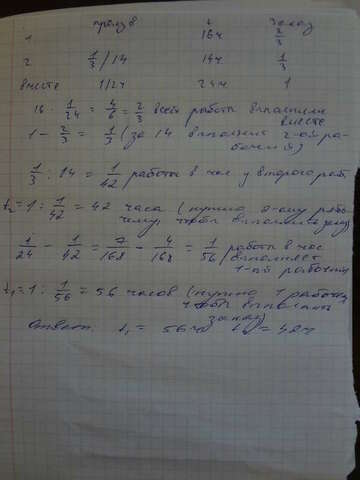 произв t заказ
1 16ч 2/3
2 1/3 / 14 14ч 1/3
вместе 1/24 24ч 1
16 · 1/24 = 4/6 = 2/3 всей работы выполнили
вместе
1 - 2/3 = 1/3 (за 14 выполнит 2-ой ра-
бочий)
1/3 : 14 = 1/42 работы в час у второго раб.
t₂ = 1 : 1/42 = 42 часа (нужно 2-ому рабо-
чему, чтобы выполнить заказ)
1/24 - 1/42 = 7/168 - 4/168 = 1/56 работы в час
выполняет
1-ый рабочий
t₁ = 1 : 1/56 = 56 часов (нужно 1 рабочему
чтобы выполнить
заказ)
Ответ. t₁ = 56ч t₂ = 42ч